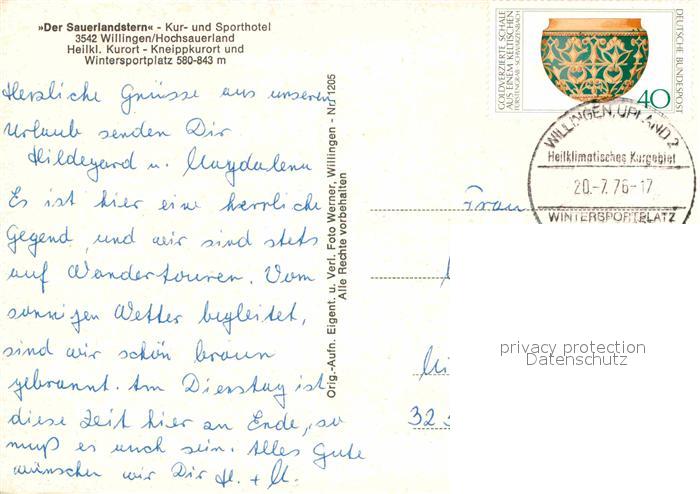 »Der Sauerlandstern« - Kur- und Sporthotel
3542 Willingen/Hochsauerland
Heilkl. Kurort - Kneippkurort und
Wintersportplatz 580-843 m
Herzliche Grüsse aus unserem
Urlaub senden Dir
Hildegard u. Magdalena
Es ist hier eine herrliche
Gegend, und wir sind stets
auf Wandertouren. Vom
sonnigen Wetter begleitet,
sind wir schön braun
gebrannt. Am Dienstag ist
diese Zeit hier an Ende, so
muß es auch sein. Alles Gute
wünschen wir Dir H. + M.
Orig.-Aufn. Eigent. u. Verl. Foto Werner, Willingen - Nr. 1205
Alle Rechte vorbehalten
GOLDVERZIERTE SCHALE
AUS EINEM KELTISCHEN
FÜRSTENGRAB · SCHWARZENBACH
DEUTSCHE BUNDESPOST
40
WILLINGEN, UPLAND 2
Heilklimatisches Kurgebiet
20.-7.76-17
WINTERSPORTPLATZ
Frau
32
privacy protection
Datenschutz